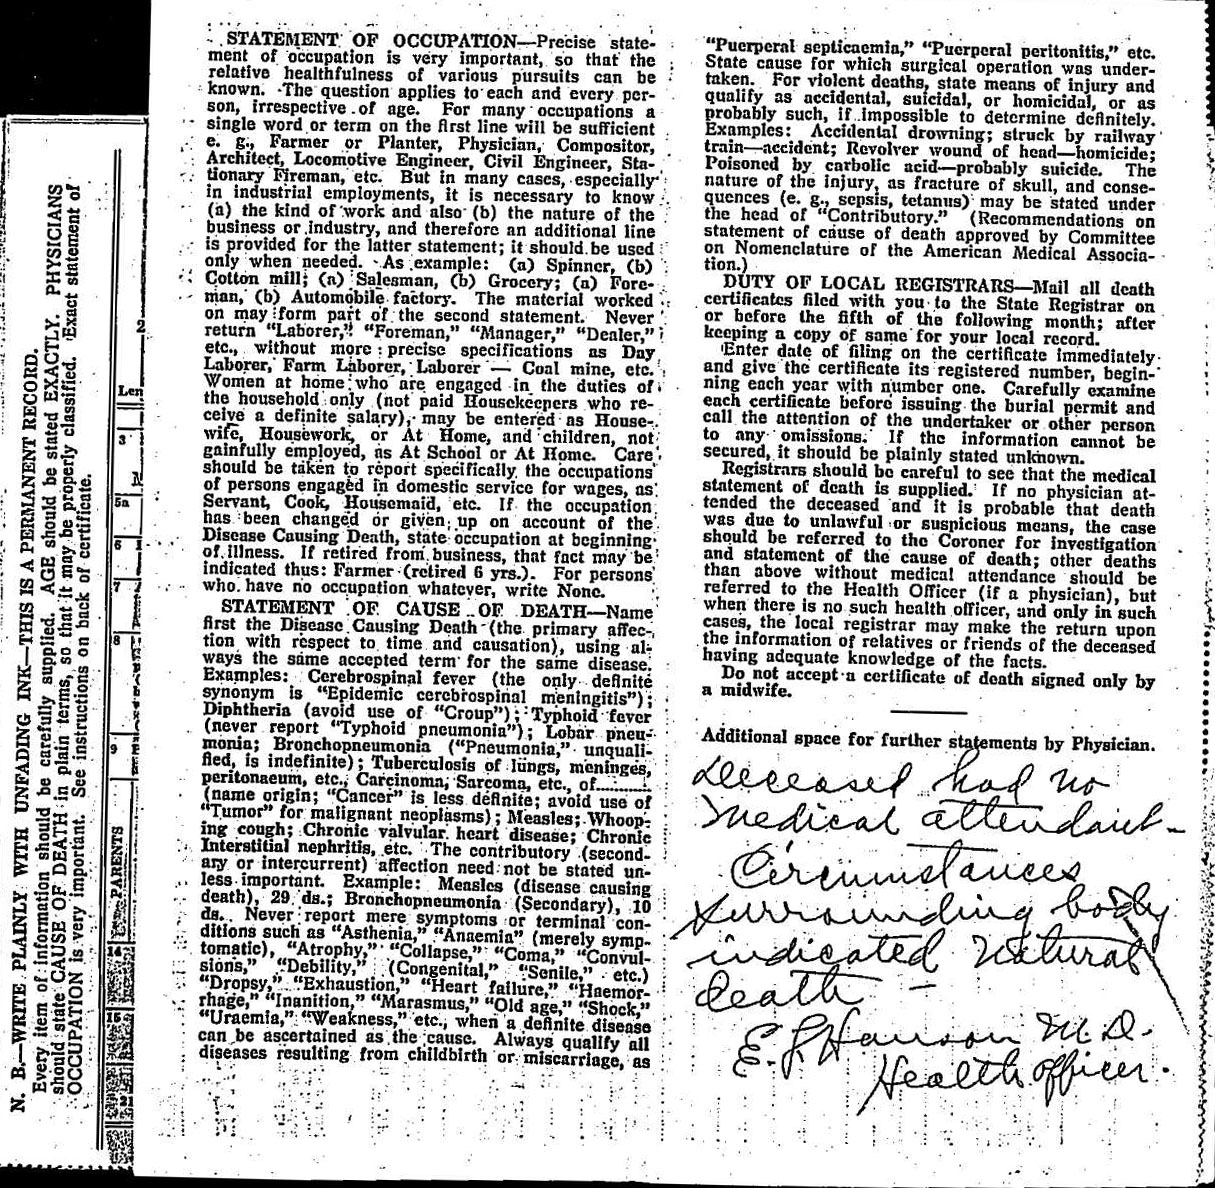 N. B.—WRITE PLAINLY WITH UNFADING INK—THIS IS A PERMANENT RECORD.
Every item of information should be carefully supplied. AGE should be stated EXACTLY. PHYSICIANS
should state CAUSE OF DEATH in plain terms, so that it may be properly classified. Exact statement of
OCCUPATION is very important. See instructions on back of certificate.
2
Len
3
N
5a
6
7
8
9
PARENTS
14
15
STATEMENT OF OCCUPATION—Precise state-
ment of occupation is very important, so that the
relative healthfulness of various pursuits can be
known. The question applies to each and every per-
son, irrespective of age. For many occupations a
single word or term on the first line will be sufficient
e. g., Farmer or Planter, Physician, Compositor,
Architect, Locomotive Engineer, Civil Engineer, Sta-
tionary Fireman, etc. But in many cases, especially
in industrial employments, it is necessary to know
(a) the kind of work and also (b) the nature of the
business or industry, and therefore an additional line
is provided for the latter statement; it should be used
only when needed. As example: (a) Spinner, (b)
Cotton mill; (a) Salesman, (b) Grocery; (a) Fore-
man, (b) Automobile factory. The material worked
on may form part of the second statement. Never
return "Laborer," "Foreman," "Manager," "Dealer,"
etc., without more precise specifications as Day
Laborer, Farm Laborer, Laborer — Coal mine, etc.
Women at home who are engaged in the duties of
the household only (not paid Housekeepers who re-
ceive a definite salary), may be entered as House-
wife, Housework, or At Home, and children, not
gainfully employed, as At School or At Home. Care
should be taken to report specifically the occupations
of persons engaged in domestic service for wages, as
Servant, Cook, Housemaid, etc. If the occupation
has been changed or given up on account of the
Disease Causing Death, state occupation at beginning
of illness. If retired from business, that fact may be
indicated thus: Farmer (retired 6 yrs.). For persons
who have no occupation whatever, write None.
STATEMENT OF CAUSE OF DEATH—Name
first the Disease Causing Death (the primary affec-
tion with respect to time and causation), using al-
ways the same accepted term for the same disease.
Examples: Cerebrospinal fever (the only definite
synonym is "Epidemic cerebrospinal meningitis");
Diphtheria (avoid use of "Croup"); Typhoid fever
(never report "Typhoid pneumonia"); Lobar pneu-
monia; Bronchopneumonia ("Pneumonia," unquali-
fied, is indefinite); Tuberculosis of lungs, meninges,
peritonaeum, etc., Carcinoma, Sarcoma, etc., of...........
(name origin; "Cancer" is less definite; avoid use of
"Tumor" for malignant neoplasms); Measles; Whoop-
ing cough; Chronic valvular heart disease; Chronic
Interstitial nephritis, etc. The contributory (second-
ary or intercurrent) affection need not be stated un-
less important. Example: Measles (disease causing
death), 29 ds.; Bronchopneumonia (Secondary), 10
ds. Never report mere symptoms or terminal con-
ditions such as "Asthenia," "Anaemia" (merely symp-
tomatic), "Atrophy," "Collapse," "Coma," "Convul-
sions," "Debility," (Congenital," "Senile," etc.)
"Dropsy," "Exhaustion," "Heart failure," "Haemor-
rhage," "Inanition," "Marasmus," "Old age," "Shock,"
"Uraemia," "Weakness," etc., when a definite disease
can be ascertained as the cause. Always qualify all
diseases resulting from childbirth or miscarriage, as
"Puerperal septicaemia," "Puerperal peritonitis," etc.
State cause for which surgical operation was under-
taken. For violent deaths, state means of injury and
qualify as accidental, suicidal, or homicidal, or as
probably such, if impossible to determine definitely.
Examples: Accidental drowning; struck by railway
train—accident; Revolver wound of head—homicide;
Poisoned by carbolic acid—probably suicide. The
nature of the injury, as fracture of skull, and conse-
quences (e. g., sepsis, tetanus) may be stated under
the head of "Contributory." (Recommendations on
statement of cause of death approved by Committee
on Nomenclature of the American Medical Associa-
tion.)
DUTY OF LOCAL REGISTRARS—Mail all death
certificates filed with you to the State Registrar on
or before the fifth of the following month; after
keeping a copy of same for your local record.
Enter date of filing on the certificate immediately
and give the certificate its registered number, begin-
ning each year with number one. Carefully examine
each certificate before issuing the burial permit and
call the attention of the undertaker or other person
to any omissions. If the information cannot be
secured, it should be plainly stated unknown.
Registrars should be careful to see that the medical
statement of death is supplied. If no physician at-
tended the deceased and it is probable that death
was due to unlawful or suspicious means, the case
should be referred to the Coroner for investigation
and statement of the cause of death; other deaths
than above without medical attendance should be
referred to the Health Officer (if a physician), but
when there is no such health officer, and only in such
cases, the local registrar may make the return upon
the information of relatives or friends of the deceased
having adequate knowledge of the facts.
Do not accept a certificate of death signed only by
a midwife.
Additional space for further statements by Physician.
Deceased had no
medical attendant -
Circumstances
surrounding body
indicated natural
death -
E. L. Hanson M. D.
Health officer.